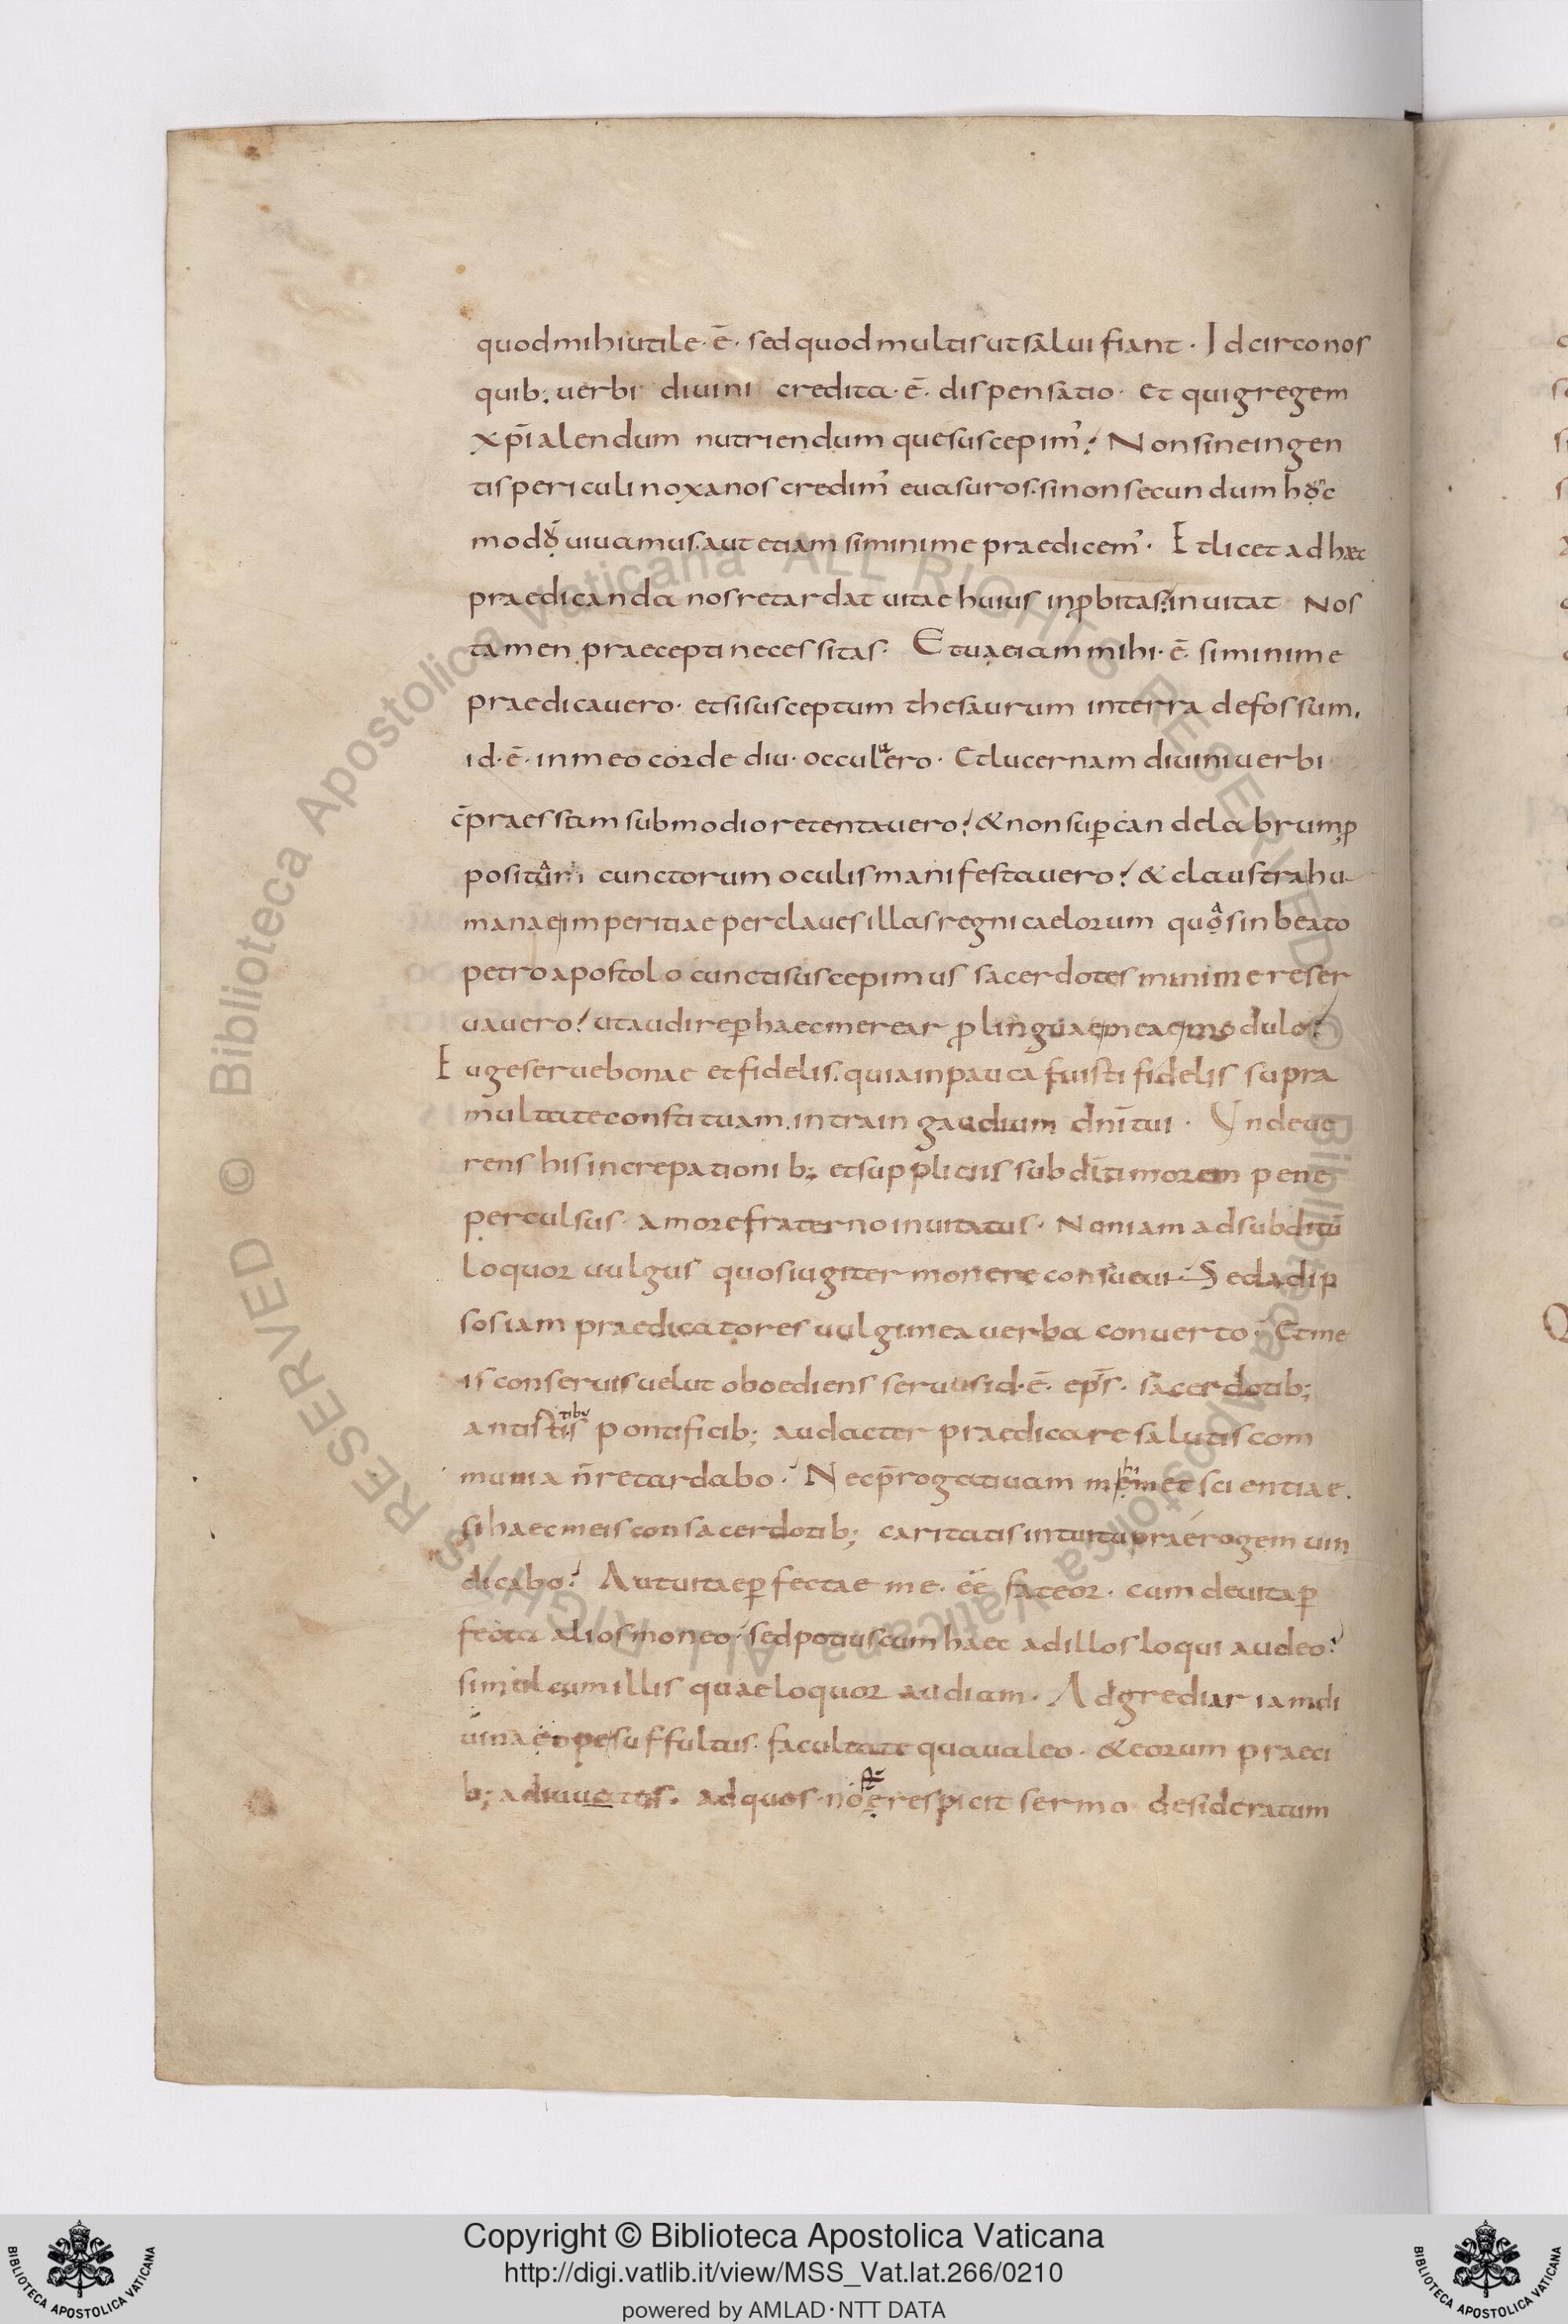 quod mihi utile · ē · sed quod multis ut salui fiant · Idcirco nos
quib; uerbi diuini credita · ē · dispensatio · et qui gregem
xp̄i alendum nutriendumque suscepim᾽ ; Non sine ingen
tis periculi noxa nos credim᾽ euasuros · si non secundum hoc
modo uiuamus · aut etiam si minime praedicem᾽ · Et licet ad haec
praedicanda nos retardat uitae huius inꝓbitas ; inuitat nos
tamen praecepti necessitas · Et uae iam mihi · ē · si minime
praedicauero · et si susceptum thesaurum in terra defossum ,
id · ē · in meo corde diu · occultero · Et lucernam diuini uerbi
c̄praessam sub modio retentauero ; & non suꝑ candelabrum ꝓ
positam cunctorum oculis manifestauero ; & claustra hu
manae imperitiae per claues illas regni caelorum quas in beato
petro apostolo cuncti suscepimus sacerdotes minime reser
uauero ; ut audire ꝑ haec merear ꝓ linguae meae modulo ;
Euge serue bonae et fidelis · quia in pauca fuisti fidelis supra
multa te constituam · intra in gaudium dn̄i tui · Unde ue
rens his increpationib; et suppliciis subdi timorem pene
perculsus · amore fraterno inuitatus · Non iam ad subditū
loquor uulgus quos iugiter monere consueui · Sed ad ip
sos iam praedicatores uulgi mea uerba conuerto · Et me
is conseruis uelut oboediens seruus id · ē · ep̄s · sacerdotib;
antistis tibus pontificib; audacter praedicare salutis com
munia n̄ retardabo · Nec p̄rogatiuam mihimet scientiae ·
si haec meis consacerdotib; caritatis intuitu praerogem uin
dicabo ; Aut uitae ꝑfectae me · ēē fateor · cum de uita ꝑ
fecta alios moneo · sed potius cum haec ad illos loqui audeo ;
simul cum illis quae loquor audiam · Adgrediar iam di
uina ope suffultus · facultate qua ualeo · & eorum praeci
b; adiuuatus · ad quos nr̄ē respicit sermo desideratum
Copyright © Biblioteca Apostolica Vaticana
http://digi.vatlib.it/view/MSS_Vat.lat.266/0210
powered by AMLAD·NTT DATA